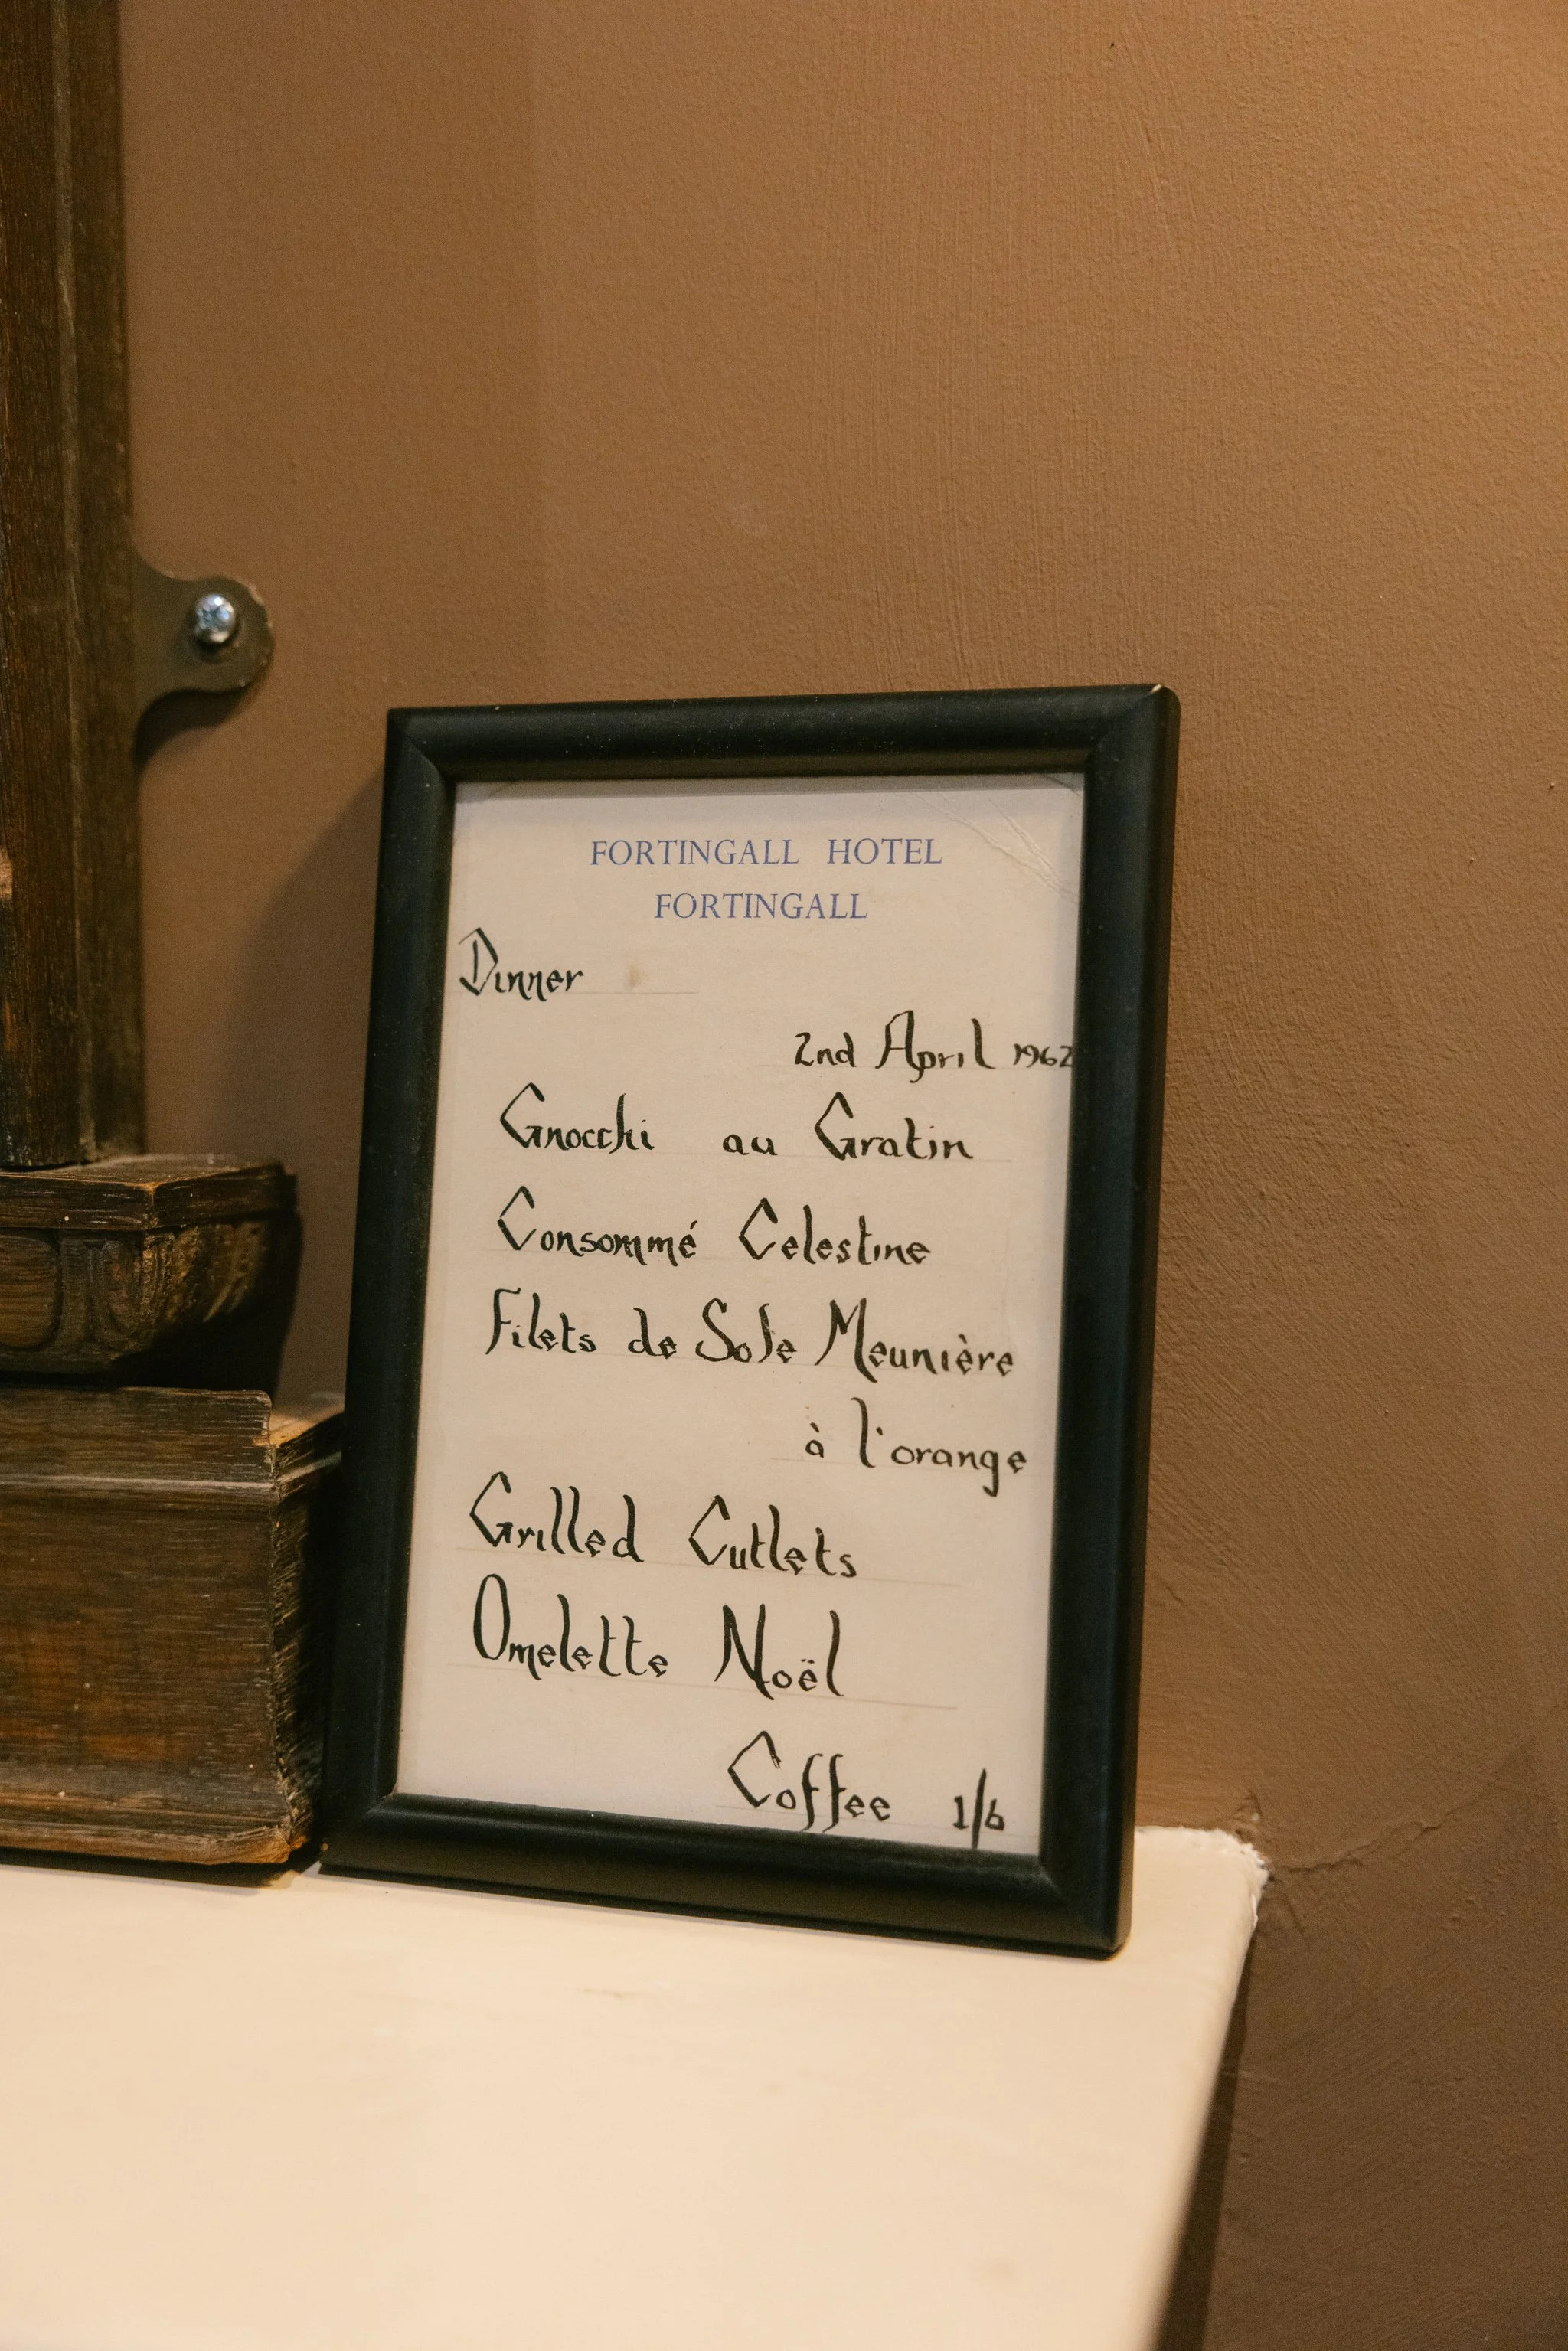 FORTINGALL HOTEL
FORTINGALL
Dinner
2nd April 1962
Gnocchi au Gratin
Consommé Celestine
Filets de Sole Meunière
à l'orange
Grilled Cutlets
Omelette Noël
Coffee 1/6